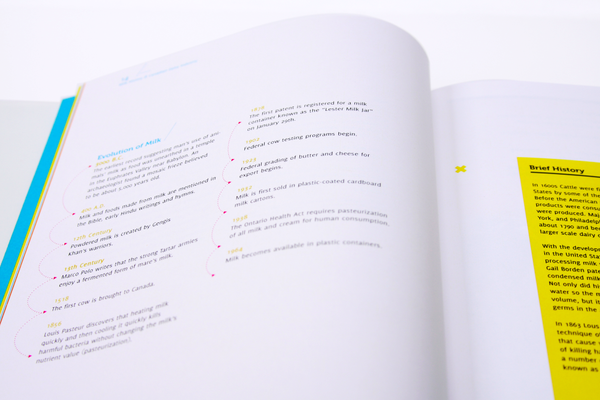 Evolution of Milk
5000 B.C.
The earliest record suggesting man's use of animals' milk as food was unearthed in a temple
in the Euphrates Valley near Babylon. An
archaeologist found a mosaic frieze believed
to be about 5,000 years old.
Milk and foods made from milk are mentioned in
the Bible, early Hindu writings and hymns.
12th Century
Powdered milk is created by Gengis
Khan's warriors.
13th Century
Marco Polo writes that the strong tartar armies
enjoy a fermented form of mare's milk.
1518
The first cow is brought to Canada.
Louis Pasteur discovers that heating milk
quickly and then cooling it quickly kills
harmful bacteria without changing the milk's
nutrient value (pasteurization).
The first patent is registered for a milk
container known as the "Lester Milk Jar"
on January 29th.
Federal cow testing programs begin.
Federal grading of butter and cheese for
export begins.
Milk is first sold in plastic-coated cardboard
milk cartons.
The Ontario Health Act requires pasteurization
of all milk and cream for human consumption.
1964
Milk becomes available in plastic containers.
Brief History
In 1600s Cattle were
States by some of the
Before the American
products were consu
were produced. Maj
York, and Philadelp
about 1790 and bee
larger scale dairy
With the develop
in the United Stat
processing milk
Gail Borden pate
condensed milk
Not only did hi
water so the m
volume, but it
germs in the
In 1863 Lous
technique of
that cause
of killing ha
a number
known as